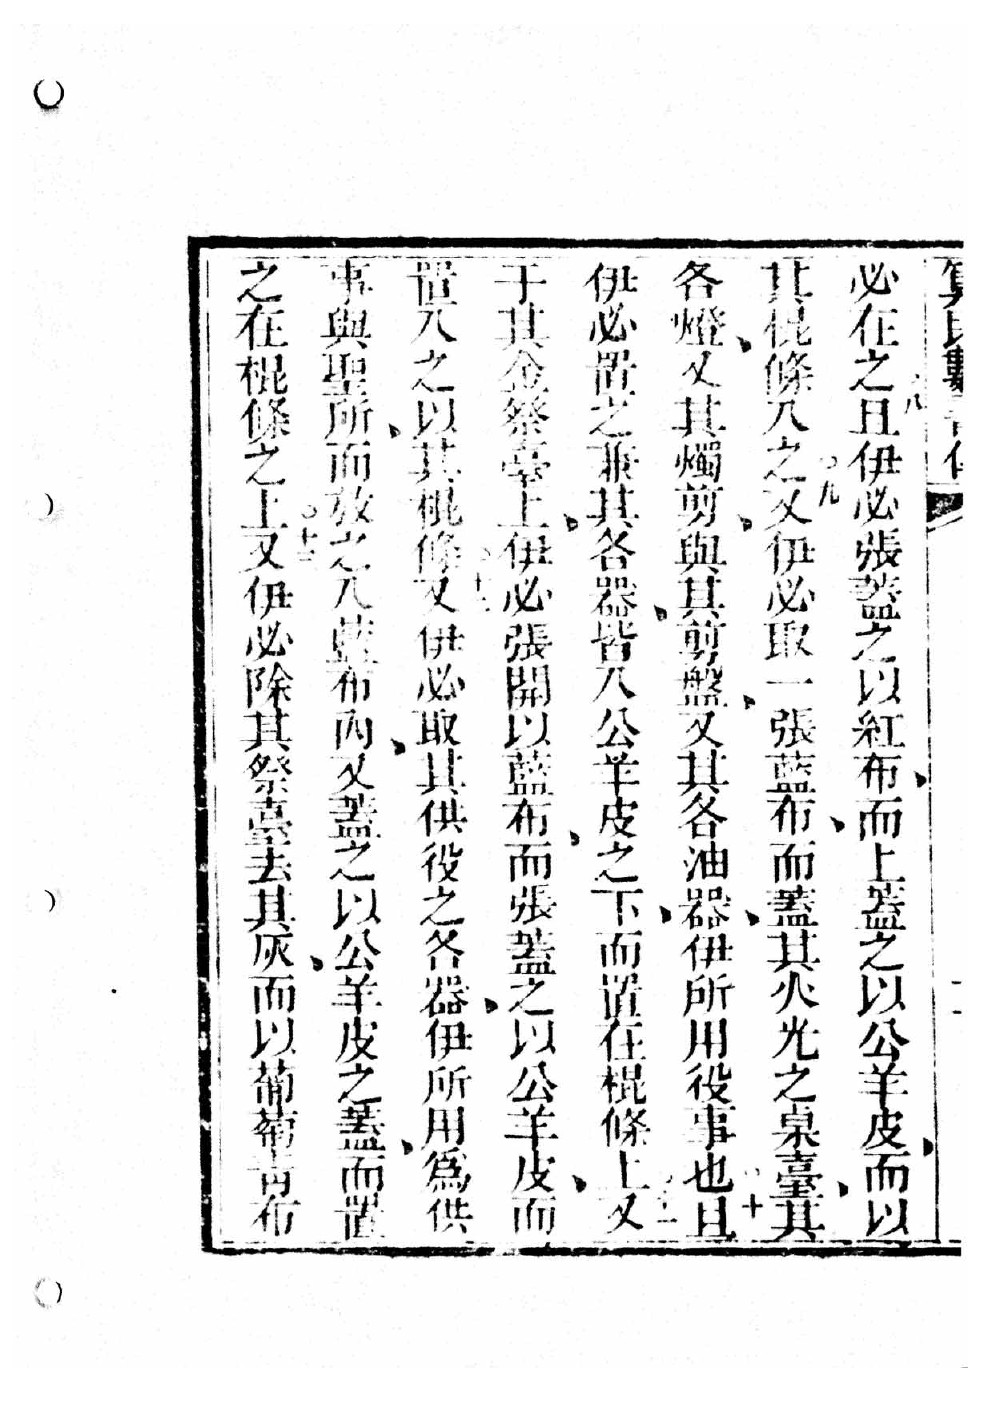 必在之且伊必張蓋之以紅布而上蓋之以公羊皮而以
其棍條入之又伊必取一張藍布而蓋其火光之桌臺其
各燈又其燭剪與其剪盤又其各油器伊所用役事也且
伊必置之兼其各器皆入公羊皮之下而置在棍條上又
于其金祭臺上伊必張開以藍布而張蓋之以公羊皮而
置入之以其棍條又伊必取其供役之各器伊所用為供
事與聖所而放之入藍布內又蓋之以公羊皮之蓋而置
之在棍條之上又伊必除其祭臺去其灰而以葡萄青布
八
九
十
十一
十二
十三